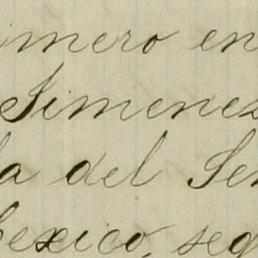 imero en
Jimenez
la del Sen
Mexico, seg